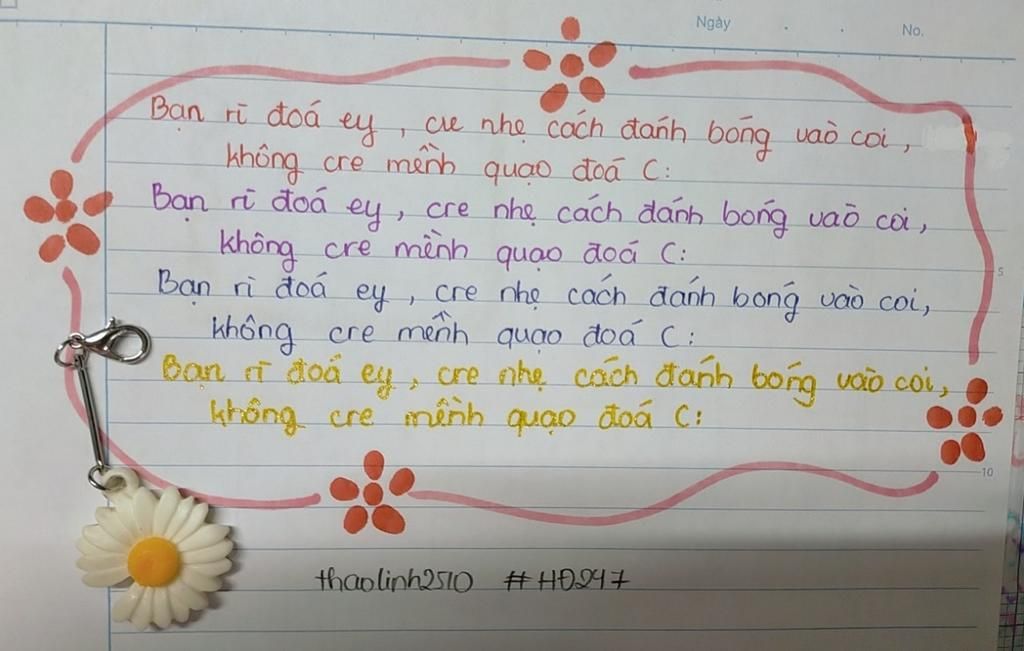 Ngày
No.
Bạn rì đoá ey, cre nhẹ cách đánh bóng vaò coi,
không cre mềnh quạo đoá C:
Bạn rì đoá ey, cre nhẹ cách đánh bóng vaò coi,
không cre mềnh quạo đoá C:
5
Bạn rì đoá ey, cre nhẹ cách đánh bóng vaò coi,
không cre mềnh quạo đoá C:
Bạn rì đoá ey, cre nhẹ cách đánh bóng vào coi,
không cre mềnh quạo đoá C:
10
thaolinh2510 #HĐ247